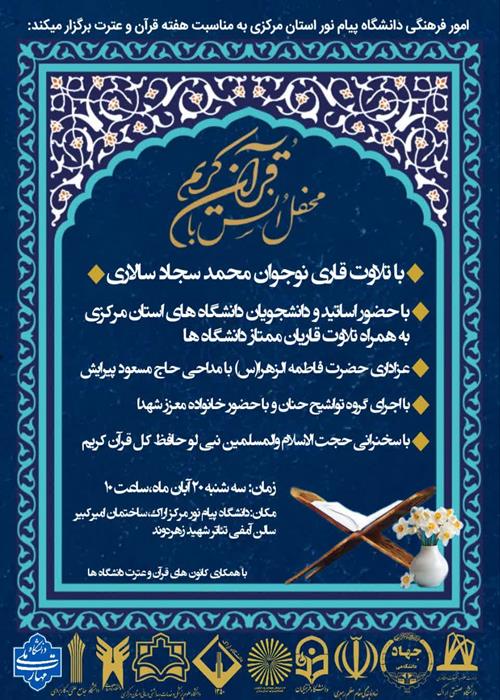 امور فرهنگی دانشگاه پیام نور استان مرکزی به مناسبت هفته قرآن و عترت برگزار میکند:
محفل انس با
قرآن کریم
با تلاوت قاری نوجوان محمد سجاد سالاری
با حضور اساتید و دانشجویان دانشگاه های استان مرکزی
به همراه تلاوت قاریان ممتاز دانشگاه ها
عزاداری حضرت فاطمه الزهرا(س) با مداحی حاج مسعود پیرایش
با اجرای گروه تواشیح حنان و با حضور خانواده معزز شهدا
با سخنرانی حجت الاسلام والمسلمین نبی لو حافظ کل قرآن کریم
زمان: سه شنبه ۲۰ آبان ماه،ساعت ۱۰
مکان:دانشگاه پیام نور مرکز اراک،ساختمان امیرکبیر
سالن آمفی تئاتر شهید زهردوند
با همکاری کانون های قرآن و عترت دانشگاه ها
جهاد
دانشگاهی